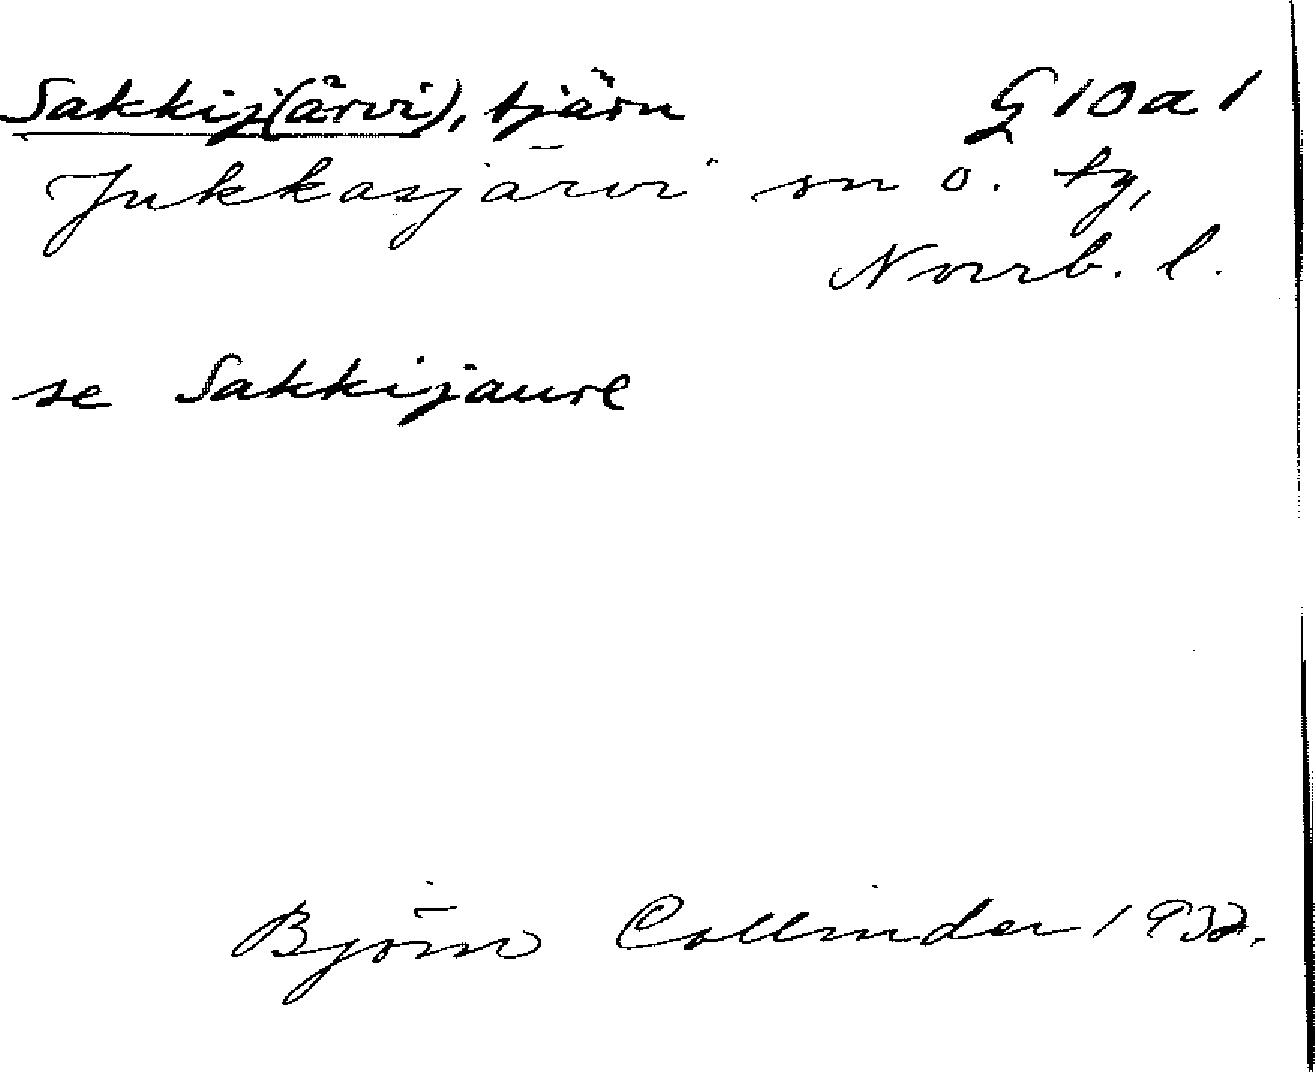 Sakkij(ärvi), tjärn G 10 a 1
Jukkasjärvi sn o. tg,
Norrb. l.
se Sakkijaure
Björn Collinder 1932.